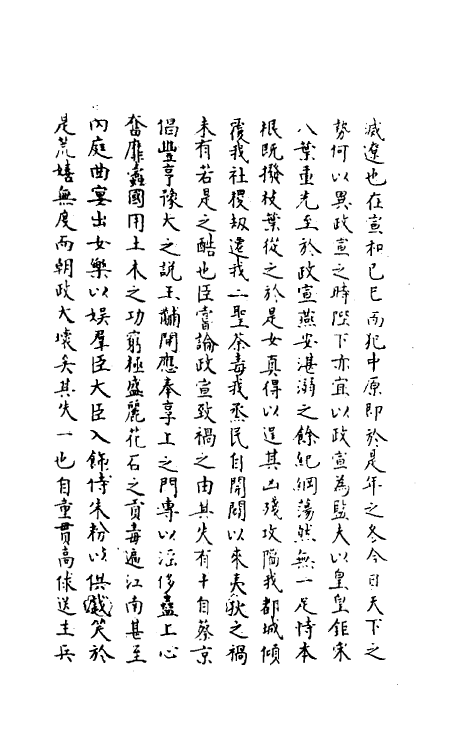 滅遼也在宣和己巳而犯中原即於是年之冬今日天下之
勢何以異政宣之時陛下亦宜以政宣為監夫以皇皇鉅宋
八葉重光至於政宣燕安湛溺之餘紀綱蕩然無一足恃本
根既撥枝葉從之於是女真得以逞其凶殘攻陷我都城傾
覆我社稷刼遷我二聖荼毒我烝民自開闢以來夷狄之禍
未有若是之酷也臣嘗論政宣致禍之由其失有十自蔡京
倡豐亨豫大之說王黼開應奉享上之門專以淫侈蠱上心
奢靡蠧國用土木之功窮極盛麗花石之貢毒遍江南甚至
內庭曲宴出女樂以娛羣臣大臣入餙侍朱粉以供戲笑於
是荒嬉無度而朝政大壞矣其失一也自童貫高俅送主兵